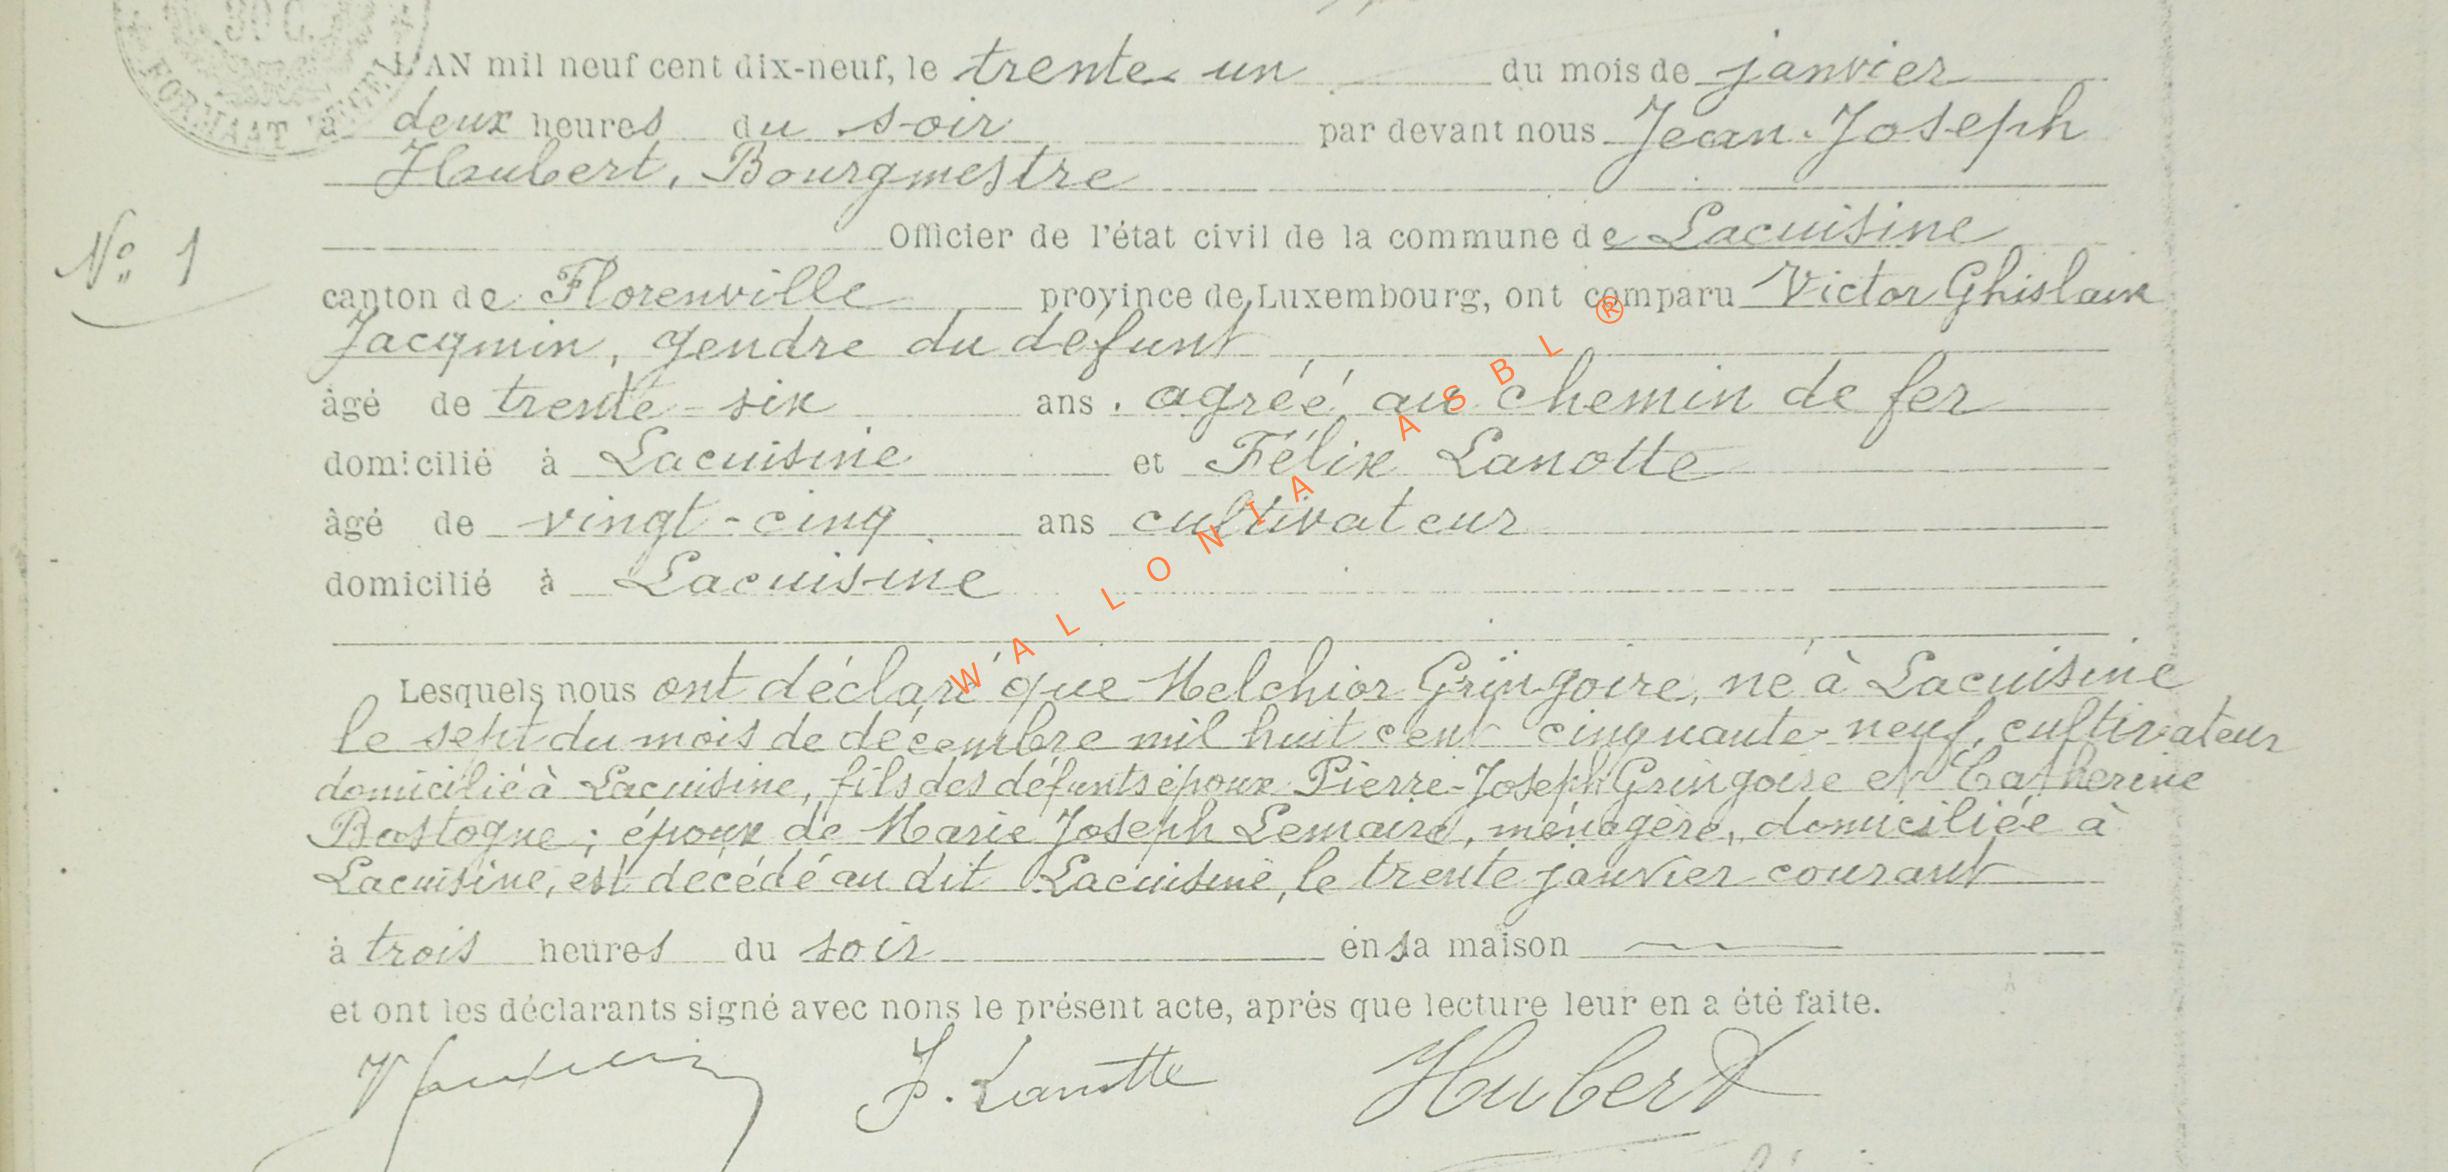 L'AN mil neuf cent dix-neuf, le trente un du mois de janvier
à deux heures du soir par devant nous Jean-Joseph
Hubert, Bourgmestre
Officier de l'état civil de la commune de Lacuisine
N° 1
canton de Florenville province de Luxembourg, ont comparu Victor Ghislain
Jacqmin, gendre du défunt
âgé de trente-six ans, agréé au chemin de fer
domicilié à Lacuisine et Félix Lanotte
âgé de vingt-cinq ans cultivateur
domicilié à Lacuisine
Lesquels nous ont déclaré que Melchior Gringoire, né à Lacuisine
le sept du mois de décembre mil huit cent cinquante-neuf, cultivateur
domicilié à Lacuisine, fils des défunts époux Pierre-Joseph Gringoire et Catherine
Bastogne; époux de Marie Joseph Lemaire, ménagère, domiciliée à
Lacuisine, est décédé au dit Lacuisine, le trente janvier courant
à trois heures du soir en sa maison
et ont les déclarants signé avec nous le présent acte, après que lecture leur en a été faite.
F. Lanotte Hubert
WALLONIA ASBL ®